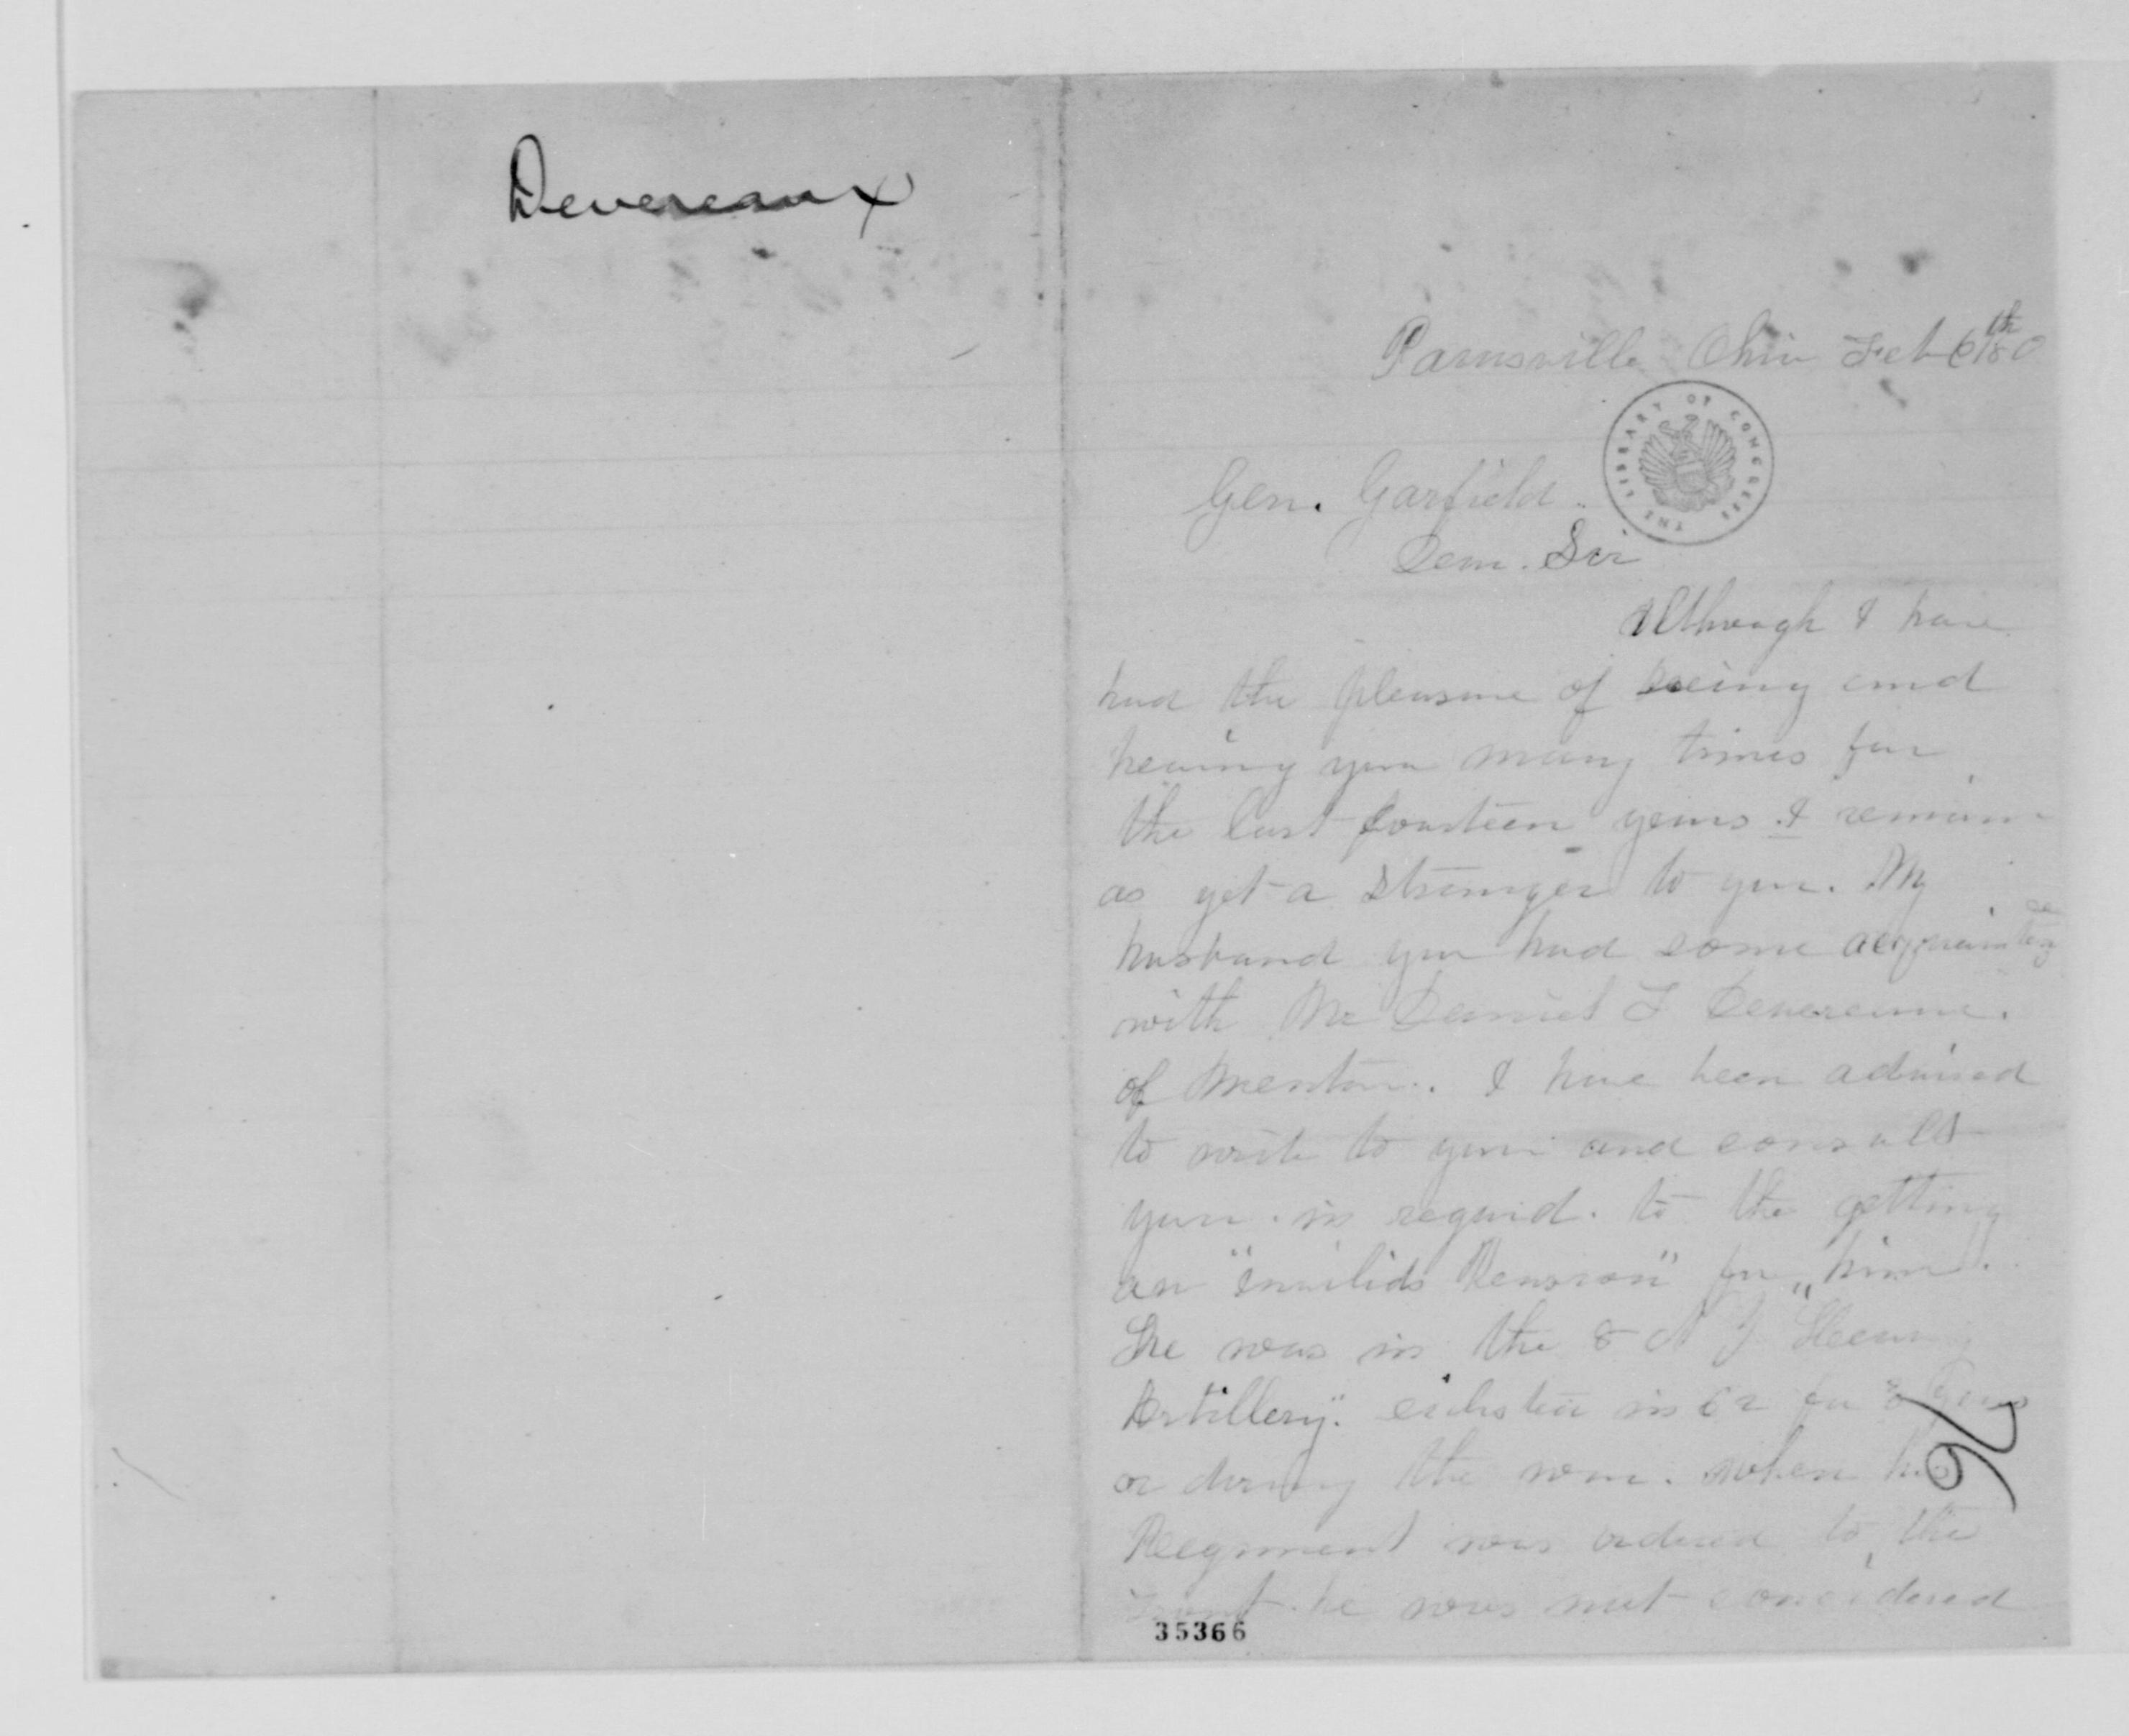 Devereaux
Painsville Ohio Feb 6th 80
THE LIBRARY OF CONGRESS
Gen. Garfield
Dear. Sir
Although I have
had the pleasure of seeing and
hearing you many times for
the last fourteen years I remain
as yet a stranger to you. My
husband you had some acquaintance
with Mr Daniel F Devereaux.
of Mentor. I have been advised
to write to you and consult
you. in reguard. to the getting
an "invilids Pension" for "him".
He was in the 8 N Y Heavy
Artillery". enlisted in 62 for 3 years
or during the war. when his
Reegment was ordered to the
Front. he was not considered
35366